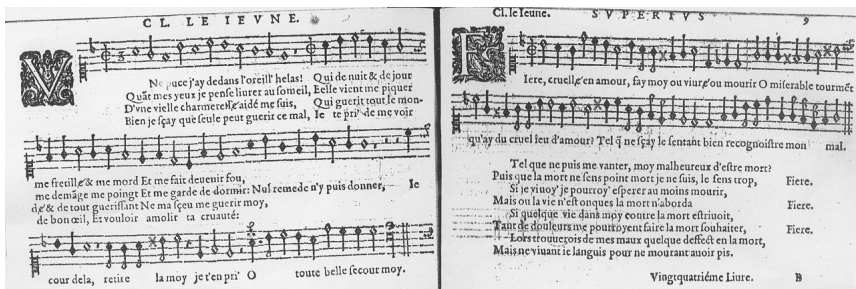 CL. LE IEVNE.
VNe puce j'ay dedans l'oreill' helas! Qui de nuit & de jour
Quāt mes yeux je pense liurer au someil, Eelle vient me piquer
D'vne vielle charmerelle aidé me suis, Qui guerit tout le mon-
Bien je sçay que seule peut guerir ce mal, Ie te pri' de me voir
me fretille & me mord Et me fait deuenir fou,
me demāge me poingt Et me garde de dormir: Nul remede n'y puis donner, Ie
de & de tout guerissant Ne ma sçeu me guerir moy,
de bon œil, Et vouloir amolir ta cruauté:
cour dela, retire la moy je t'en pri' O toute belle secour moy.
Cl. le Ieune. SVPERIVS 9
FIere, cruelle en amour, fay moy ou viure ou mourir O miserable tourmēt
qu'ay du cruel feu d'amour? Tel q̄ ne sçay le sentant bien recognoistre mon mal.
Tel que ne puis me vanter, moy malheureux d'estre mort?
Puis que la mort ne sens point mort je ne suis, le sens trop, Fiere.
Si je viuoy' je pourroy' esperer au moins mourir,
Mais ou la vie n'est onques la mort n'aborda Fiere.
Si quelque vie dans moy contre la mort estriuoit,
Tant de douleurs me pourroyent faire la mort souhaiter, Fiere.
Lors trouuerois de mes maux quelque deffect en la mort,
Mais ne viuant ie languis pour ne mourant auoir pis.
Vingtquatriéme Liure. B